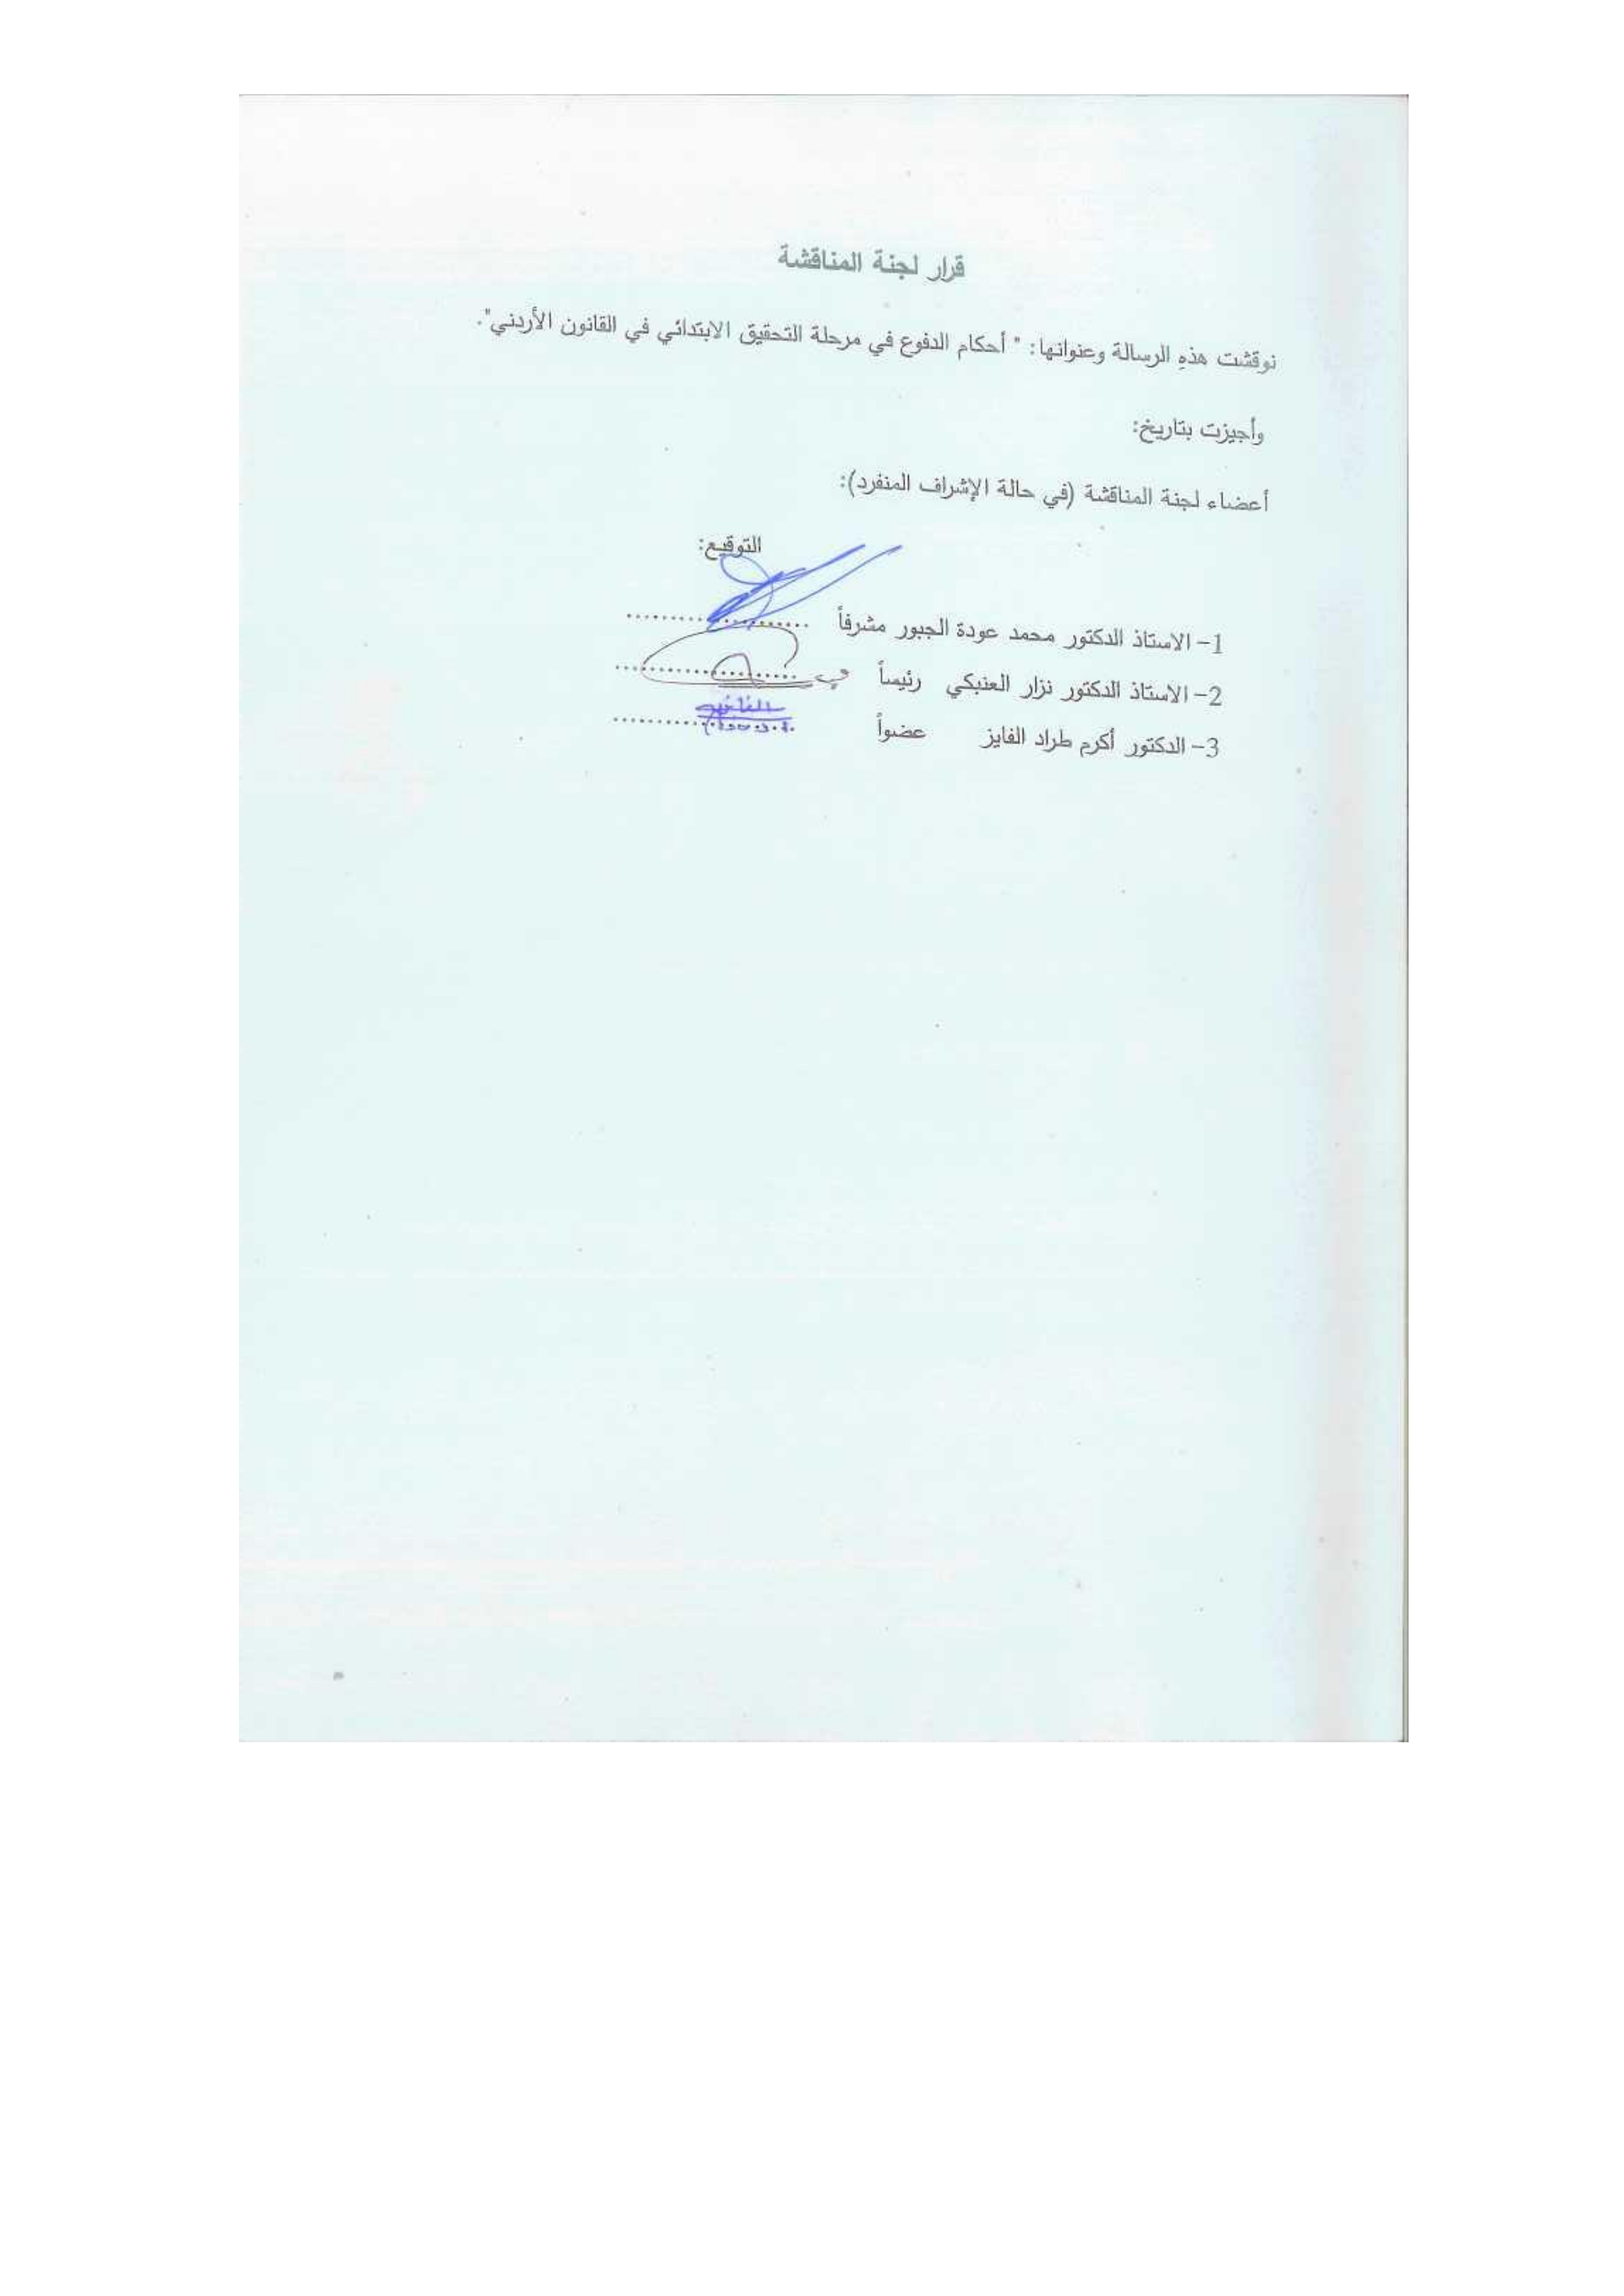 قرار لجنة المناقشة
نوقشت هذهِ الرسالة وعنوانها: " أحكام الدفوع في مرحلة التحقيق الابتدائي في القانون الأردني".
وأجيزت بتاريخ:
أعضاء لجنة المناقشة (في حالة الإشراف المنفرد):
التوقيع:
1- الاستاذ الدكتور محمد عودة الجبور مشرفاً ......................
2- الاستاذ الدكتور نزار العنبكي رئيساً ......................
3- الدكتور أكرم طراد الفايز عضواً ......................